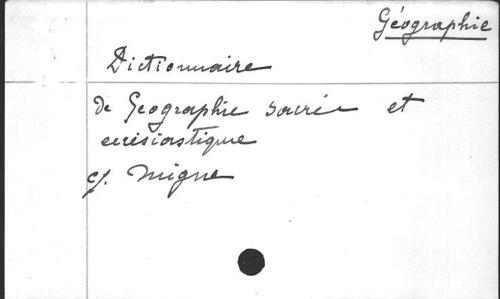 Géographie
Dictionnaire
de Geographie sacrée et
ecclésiastique
cf. Migne